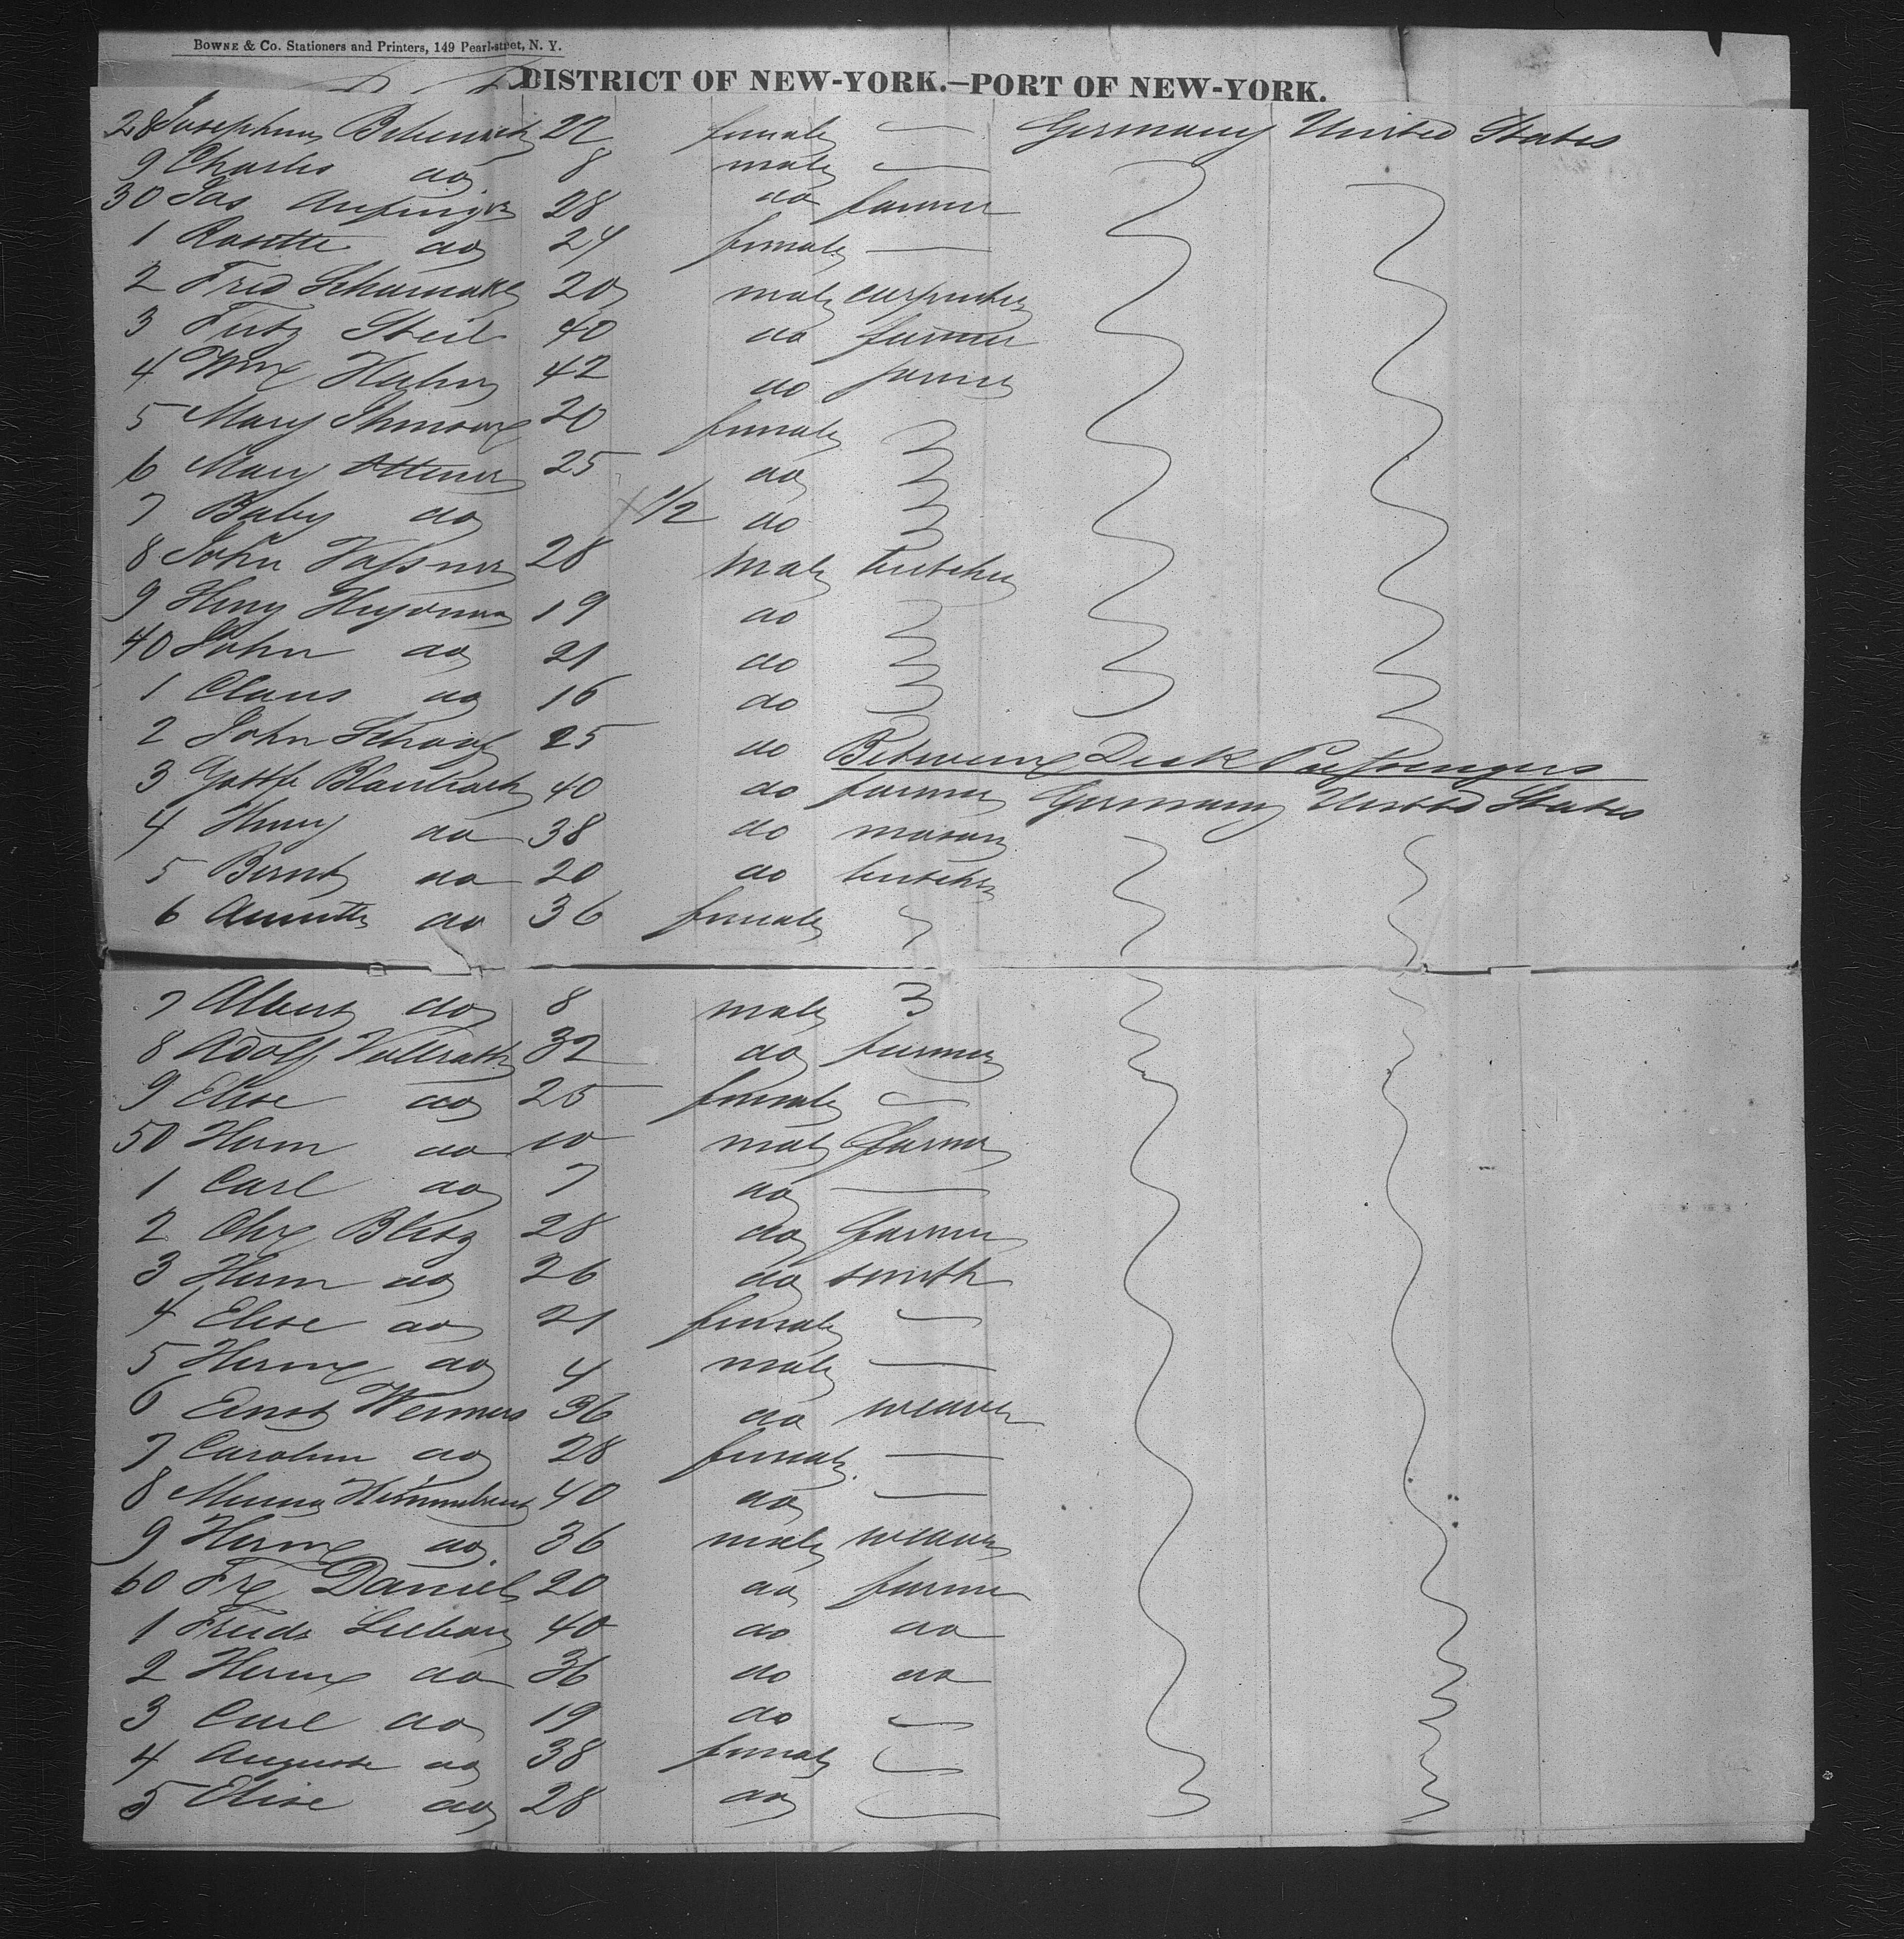 BOWNE & CO. Stationers and Printers, 149 Pearl-street, N. Y.
DISTRICT OF NEW-YORK.—PORT OF NEW-YORK.
28 22 female Germany United States
9 Charles do 8 male
30 Jas 28 do farmer
1 Rosette do 24 female
2 Fred 20 male carpenter
3 Fritz Steil 40 do farmer
4 Wm Hahn 42 do farmer
5 Mary 20 female
6 Mary 25 do
7 Baby do 1/2 do
8 John 28 male butcher
9 Henry 19 do
40 John do 21 do
1 Claus do 16 do
2 John 25 do Between Deck Passengers
3 40 do farmer Germany United States
4 Henry do 38 do mason
5 do 20 do butcher
6 do 36 female
7 Albert do 8 male
8 Adolf Vollrath 32 do farmer
9 Elise do 25 female
50 Herm do 10 male farmer
1 Carl do 7 do
2 Chr 28 do farmer
3 Herm do 26 do smith
4 Elise do 21 female
5 Herm do 4 male
6 Ernst 36 do weaver
7 Carolin do 28 female
8 40 do
9 Herm do 36 male weaver
60 Fr Daniel 20 do farmer
1 40 do do
2 Herm do 36 do do
3 Carl do 19 do
4 Auguste do 38 female
5 Elise do 28 do